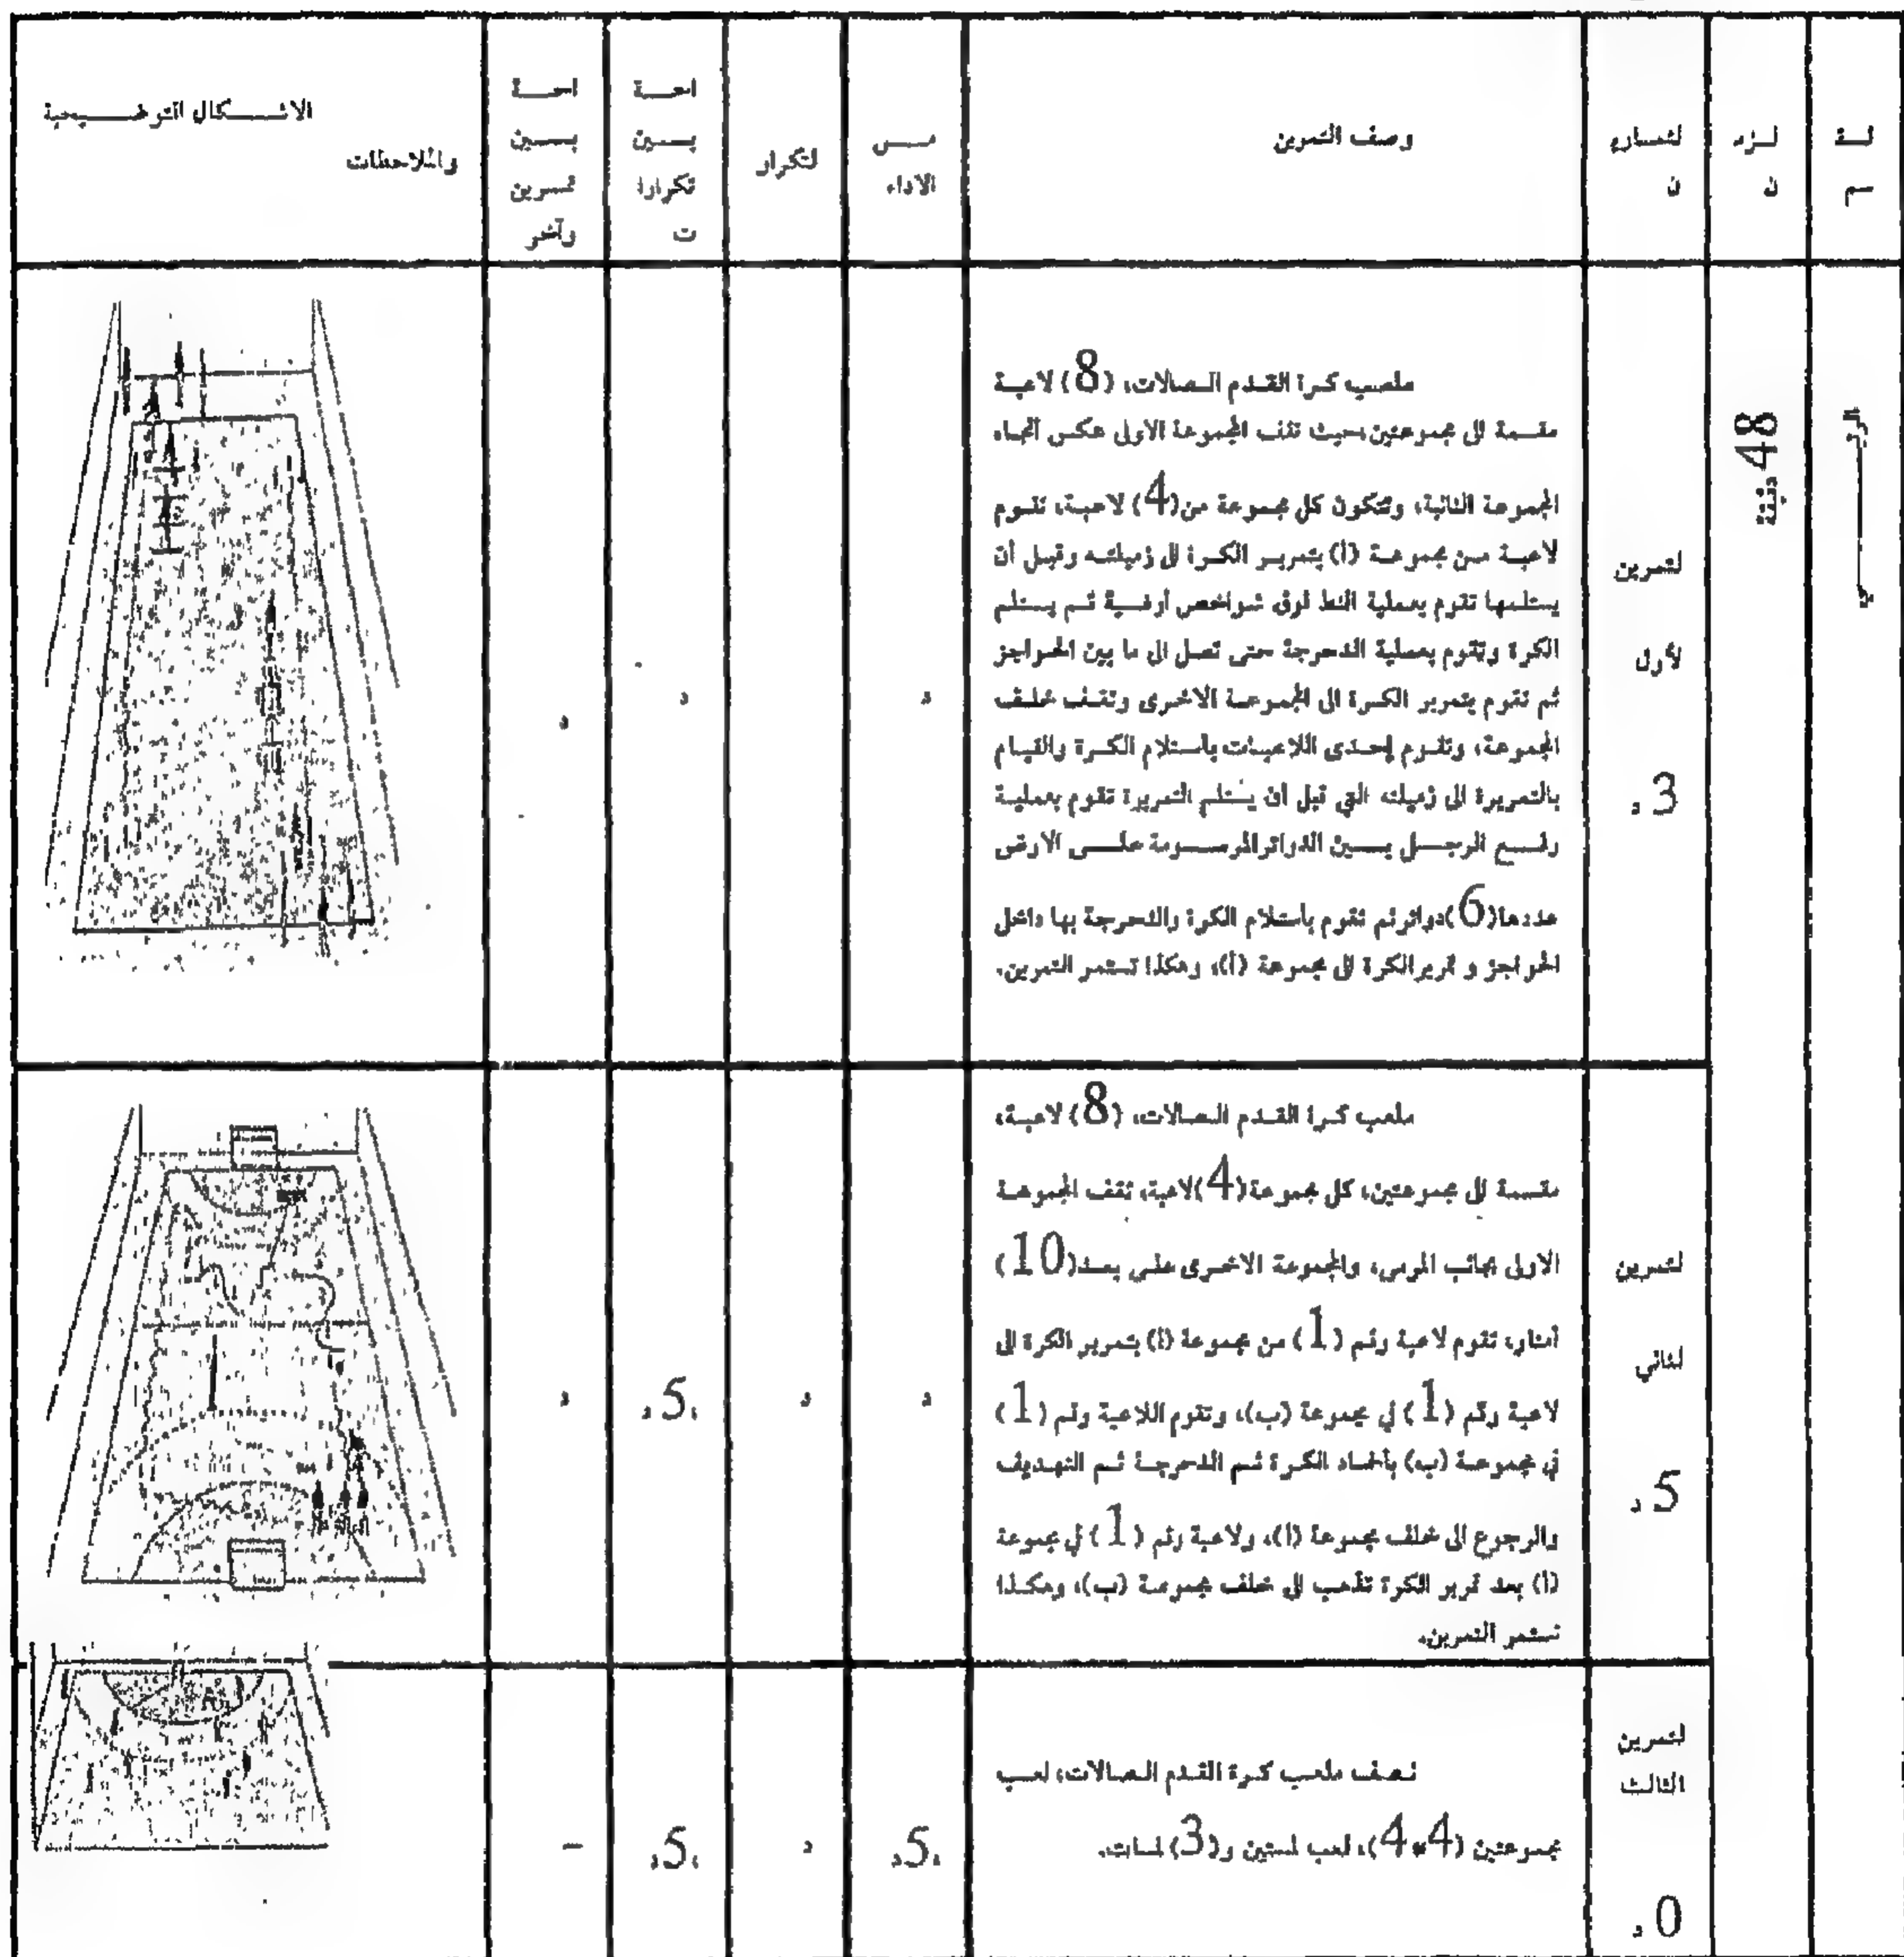 لزم
ن
لتمارين
ن
وصف التمرين
الاداء
لتكرار
احة
بين
تكرارا
ت
احة
بين
تمرين
وآخر
الاشكال التوضيحية
والملاحظات
48 دقيقة
لتمرين
لأول
3 د
ملعب كرة القدم الصالات، (8) لاعبة
مقسمة الى مجموعتين بحيث تقف المجموعة الاولى عكس اتجاه
المجموعة الثانية، وتتكون كل مجموعة من (4) لاعبة، تقوم
لاعبة من مجموعة (أ) بتمرير الكرة الى زميلته وقبل أن
يستلمها تقوم بعملية النط فوق شواخص أرضية ثم يستلم
الكرة وتقوم بعملية الدحرجة حتى تصل الى ما بين الحواجز
ثم تقوم بتمرير الكرة الى المجموعة الاخرى وتقف خلف
المجموعة، وتقوم إحدى اللاعبات باستلام الكرة والقيام
بالتمريرة الى زميلته التي قبل ان يستلم التمريرة تقوم بعملية
رفع الرجل بين الدوائر المرسومة على الارض
عددها (6) دوائر ثم تقوم باستلام الكرة والدحرجة بها داخل
الحواجز و تمرير الكرة الى مجموعة (أ)، وهكذا تستمر التمرين.
د
د
د
لتمرين
لثاني
5 د
ملعب كرة القدم الصالات، (8) لاعبة،
مقسمة الى مجموعتين، كل مجموعة (4) لاعبة، تقف المجموعة
الاولى بجانب المرمى، والمجموعة الاخرى على بعد (10)
أمتار، تقوم لاعبة رقم (1) من مجموعة (أ) بتمرير الكرة الى
لاعبة رقم (1) في مجموعة (ب)، وتقوم اللاعبة رقم (1)
في مجموعة (ب) بأخماد الكرة ثم الدحرجة ثم التهديف
والرجوع الى خلف مجموعة (أ)، ولاعبة رقم (1) في مجموعة
(أ) بعد تمرير الكرة تذهب الى خلف مجموعة (ب)، وهكذا
تستمر التمرين.
د
د
،5د
د
لتمرين
الثالث
0 د
نصف ملعب كرة القدم الصالات، لعب
مجموعتين (4*4)، لعب لمستين و(3) لمسات.
،5د
د
،5د
-